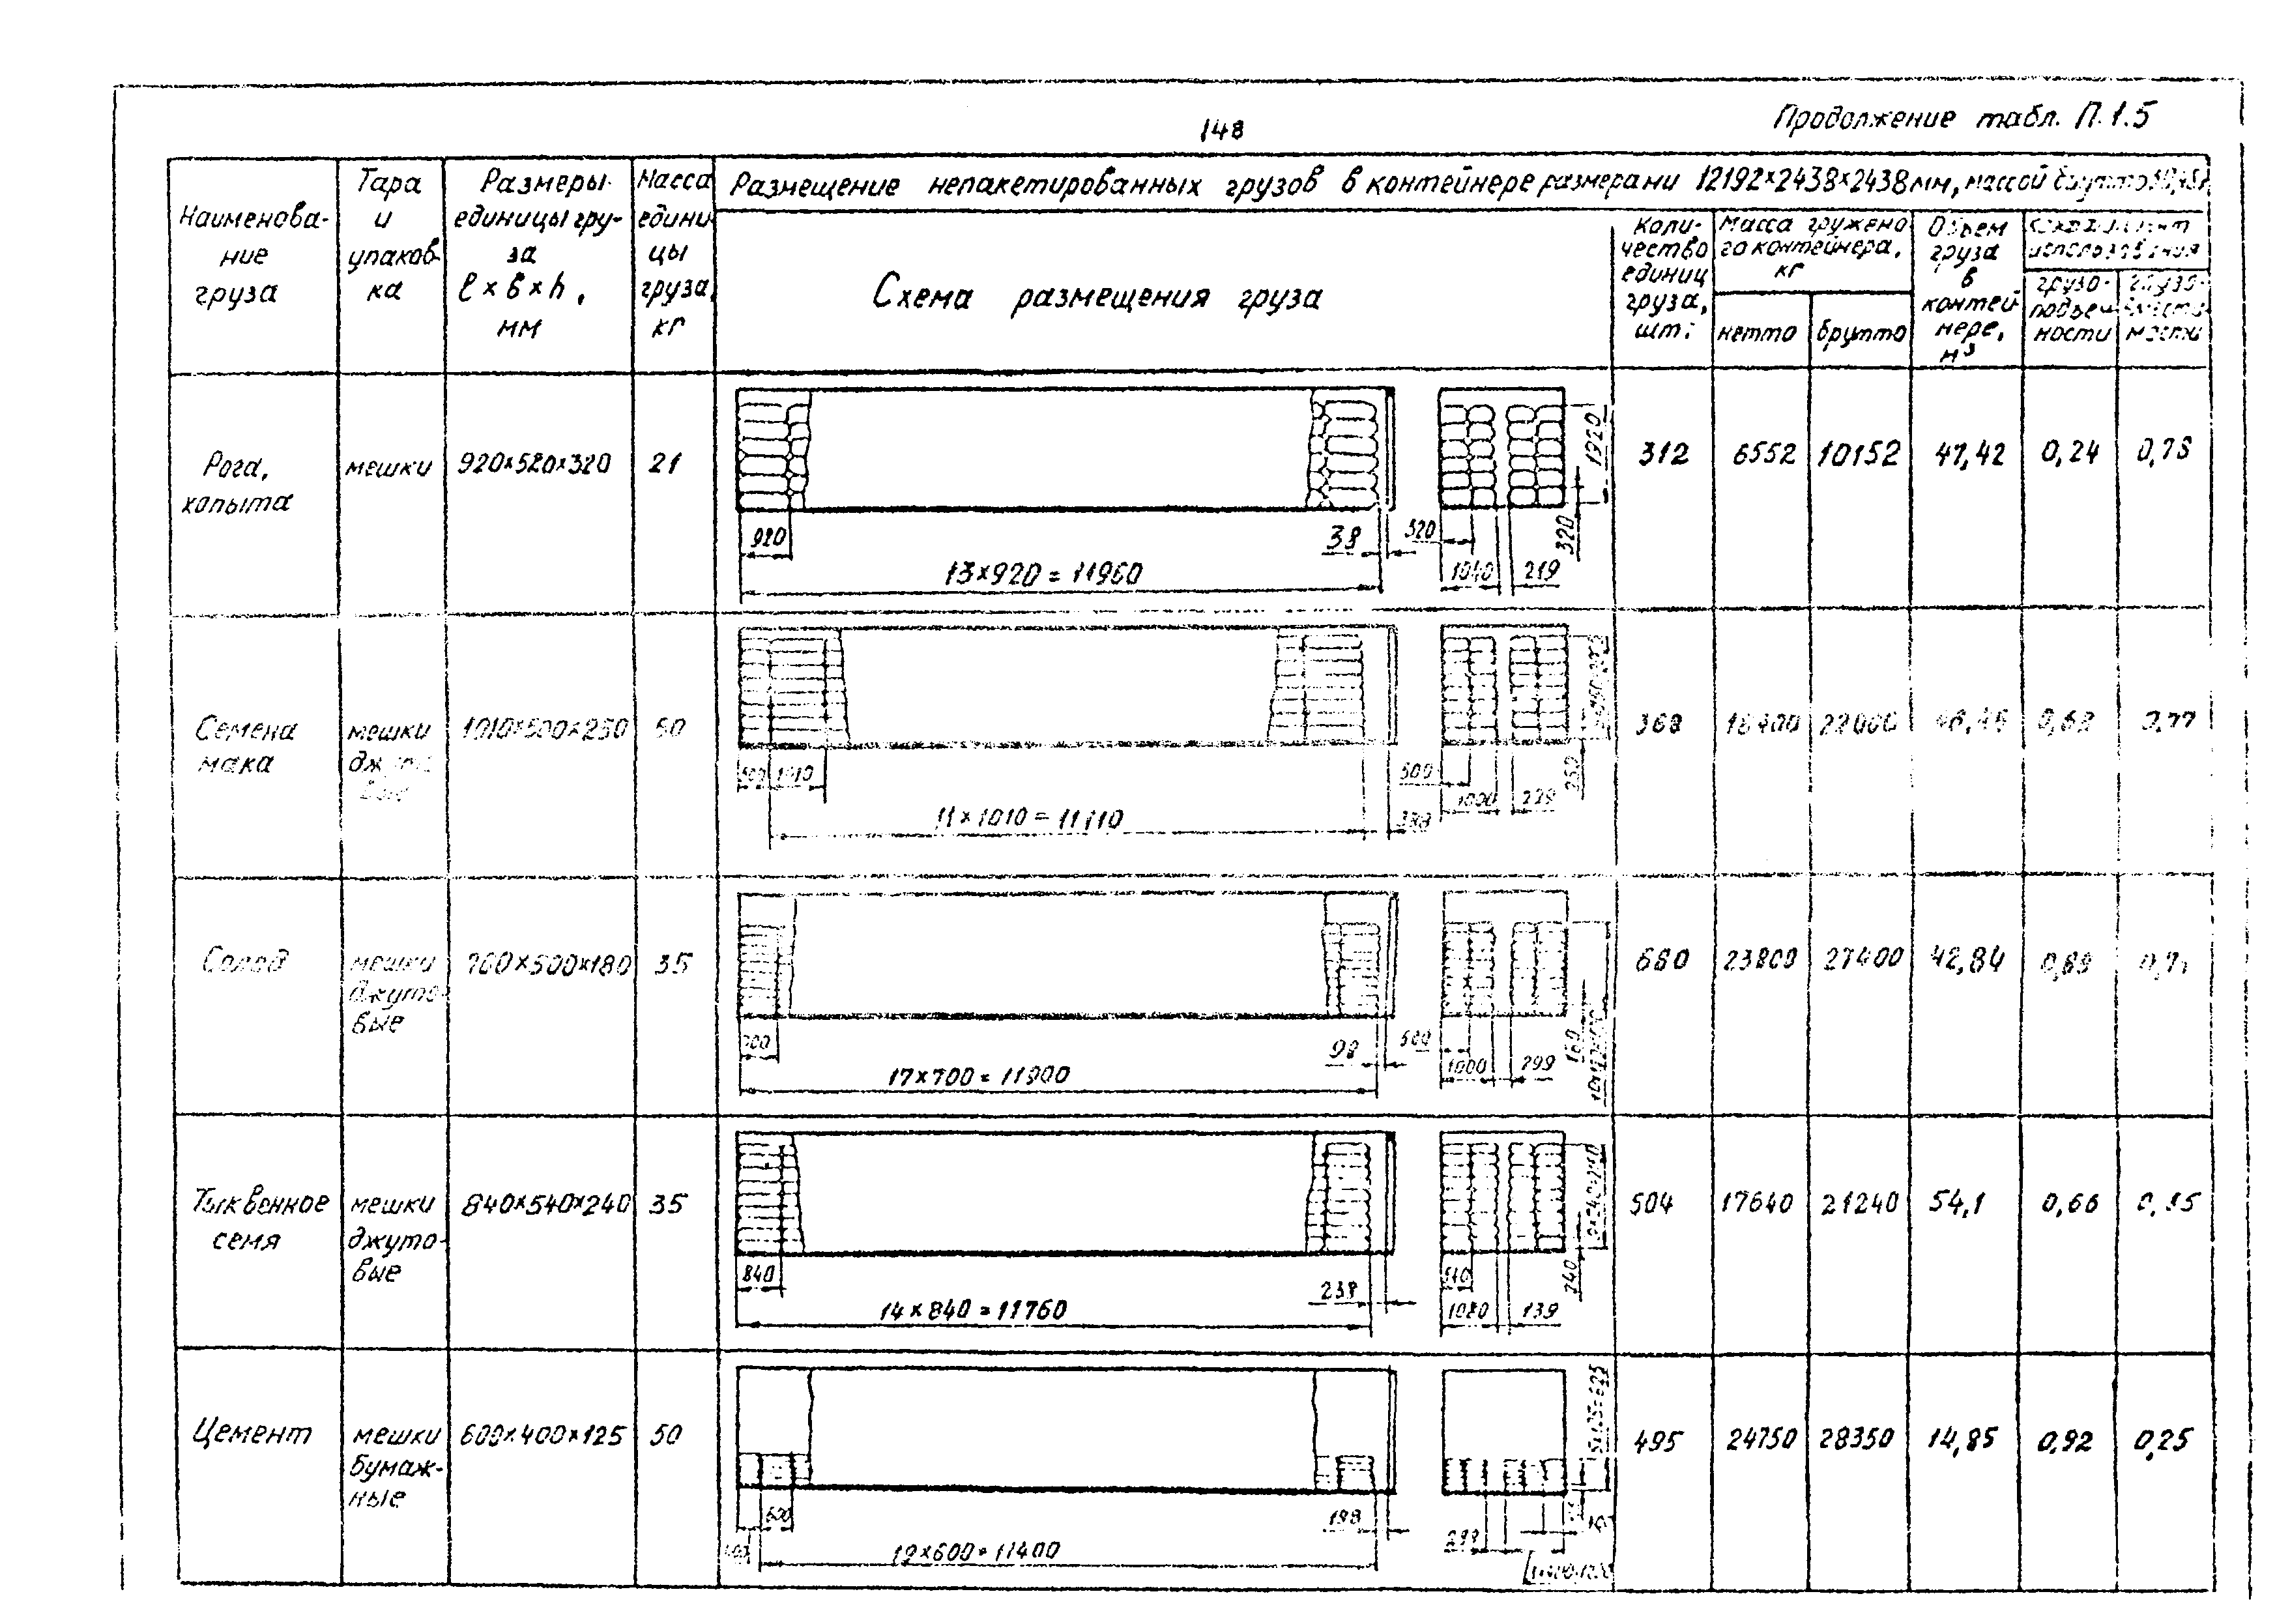 148
Продолжение табл. П.1.5
Наименова-
ние
груза
Тара
и
упаков-
ка
Размеры
единицы гру-
за
l×b×h,
мм
Масса
едини
цы
груза,
кг
Размещение непакетированных грузов в контейнере размерами 12192×2438×2438мм, массой брутто
Схема размещения груза
Коли-
чество
единиц
груза,
шт.
Масса гружено
го контейнера,
кг
нетто
брутто
Объем
груза
в
контей
нере,
м³
использования
грузо-
подъем
ности
Рога,
копыта
мешки
920×520×320
21
920
13×920=11960
38
520
1040
219
320
1920
312
6552
10152
47,42
0,24
0,78
Семена
мака
мешки
1010×500×250
50
1010
11×1010=11110
388
500
1000
229
250
368
18400
22000
0,77
Солод
мешки
джуто-
вые
700×500×180
35
700
17×700=11900
98
500
1000
299
680
23800
27400
42,84
0,89
Тыквенное
семя
мешки
джуто-
вые
840×540×240
35
840
14×840=11760
238
540
1080
139
240
504
17640
21240
54,1
0,66
Цемент
мешки
бумаж-
ные
600×400×125
50
600
19×600=11400
198
5×125=625
495
24750
28350
14,85
0,92
0,25